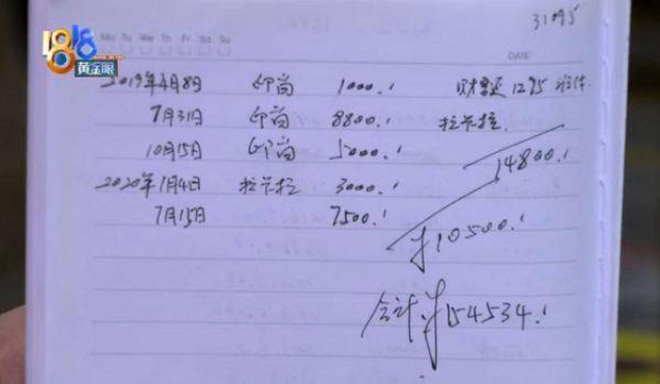 31095
1818
黄金眼
Mo Tu We Th Fr Sa Su
DATE
2019年4月8日 印尚 1000.
财富延 1295
7月31日 印尚 8800. 拉卡拉
10月15日 印尚 5000.
14800.
2020年1月4日 拉卡拉 3000.
7月15日 7500.
¥10500.
合计¥54534.